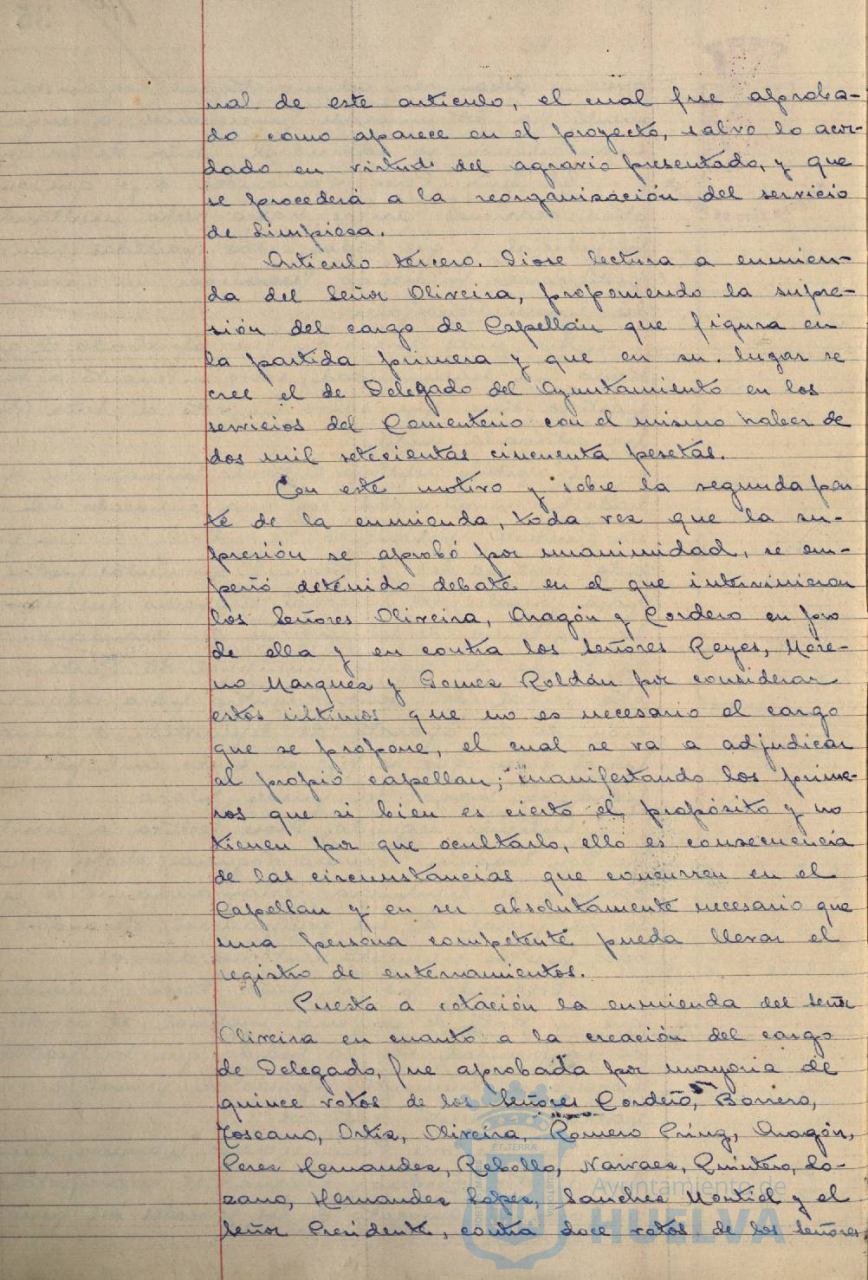 nal de este artículo, el cual fue aproba-
do como aparece en el proyecto, salvo lo acor-
dado en virtud del agravio presentado, y que
se procederá a la reorganización del servicio
de Limpieza.
Artículo tercero. Diose lectura a enmien-
da del Señor Oliveira, proponiendo la supre-
sión del cargo de Capellán que figura en
la partida primera y que en su lugar se
cree el de Delegado del Ayuntamiento en los
servicios del Cementerio con el mismo haber de
dos mil setecientas cincuenta pesetas.
Con este motivo y sobre la segunda par
te de la enmienda, toda vez que la su-
presión se aprobó por unanimidad, se em-
peñó detenido debate en el que intervinieron
los Señores Oliveira, Aragón y Cordero en pro
de ella y en contra los Señores Reyes, More-
no Marquez y Gomez Roldán por considerar
estos últimos que no es necesario el cargo
que se propone, el cual se va a adjudicar
al propio capellan; manifestando los prime-
ros que si bien es cierto el propósito y no
tienen por que ocultarlo, ello es consecuencia
de las circunstancias que concurren en el
Capellan y en ser absolutamente necesario que
una persona competente pueda llevar el
registro de enterramientos.
Puesta a votación la enmienda del señor
Oliveira en cuanto a la creación del cargo
de Delegado, fue aprobada por mayoria de
quince votos de los Señores Cordero, Borrero,
Toscano, Ortiz, Oliveira, Romero Aragón,
Perez Hernandez, Rebollo, Narvaez, Quintero, Lo-
zano, Hernandez Lopez, Sanchez Montiel y el
Señor Presidente, contra doce votos de los Señores
Ayuntamiento de
HUELVA